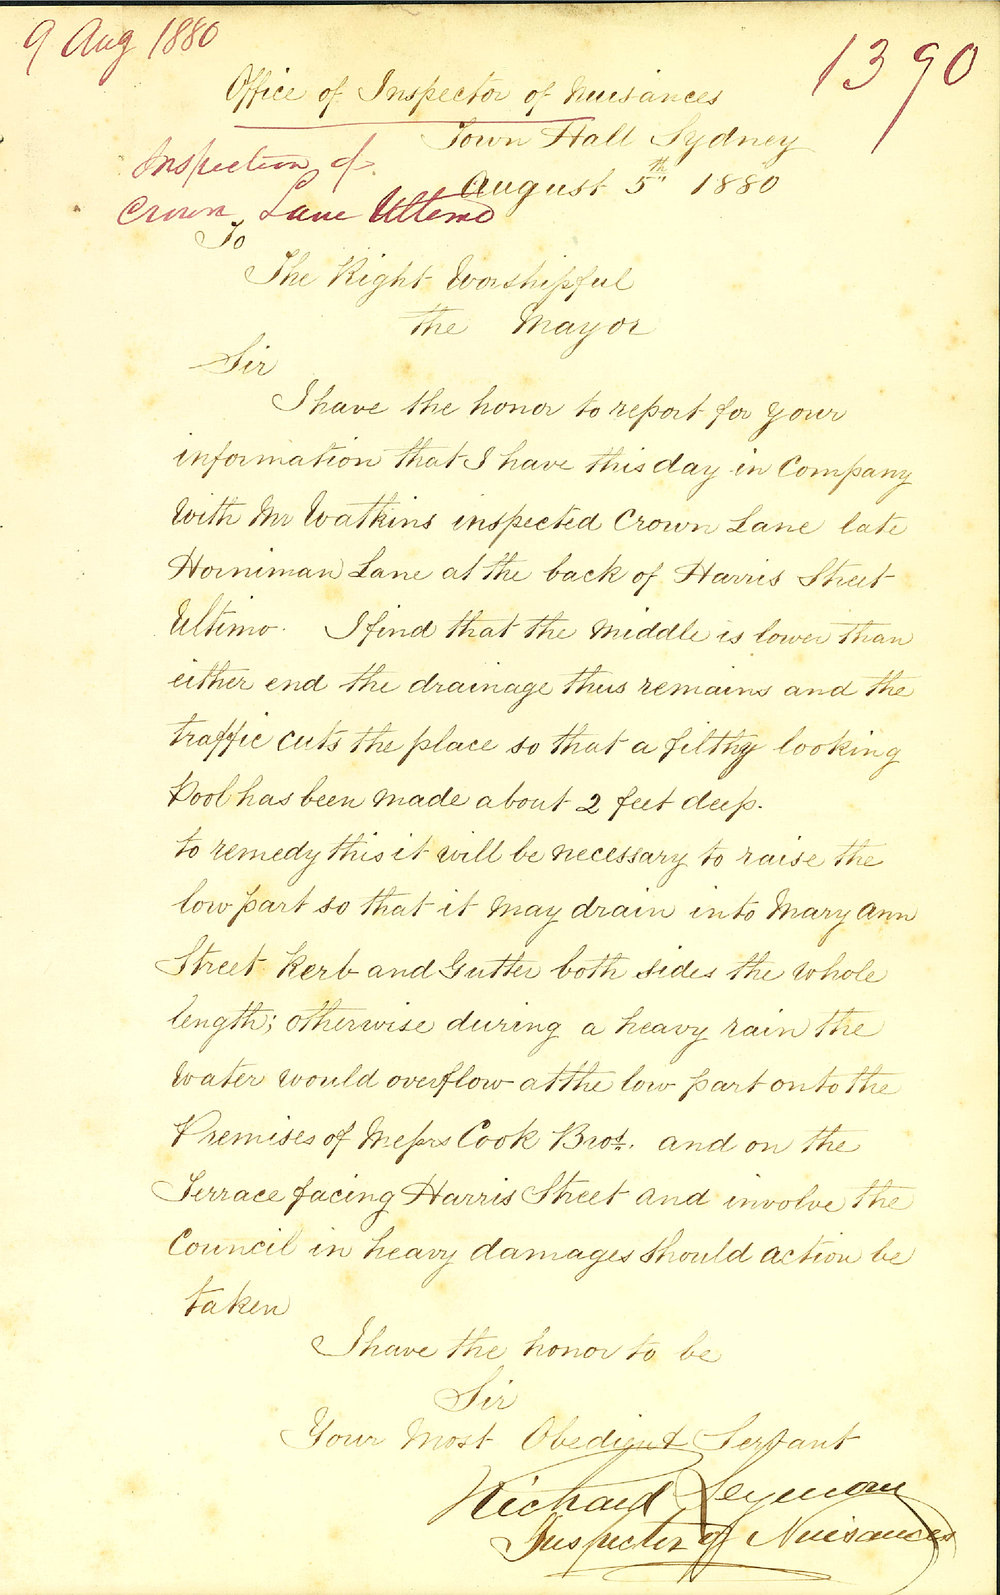 9 Aug 1880
1390
Office of Inspector of Nuisances
Town Hall Sydney
Inspection of
August 5th 1880
Crown Lane Ultimo
To
The Right Worshipful
the Mayor
Sir
I have the honor to report for your
information that I have this day in Company
With Mr Watkins inspected Crown Lane late
Horniman Lane at the back of Harris Street
Ultimo. I find that the Middle is lower than
either end the drainage thus remains and the
traffic cuts the place so that a filthy looking
Pool has been made about 2 feet deep.
to remedy this it will be necessary to raise the
low part so that it May drain into Mary Ann
Street Kerb and Gutter both sides the whole
length; otherwise during a heavy rain the
Water would overflow at the low part on to the
Premises of Messrs Cook Bros. and on the
Terrace facing Harris Street and involve the
Council in heavy damages Should action be
taken
I have the honor to be
Sir
Your Most Obedient Servant
Richard Seymour
Inspector of Nuisances